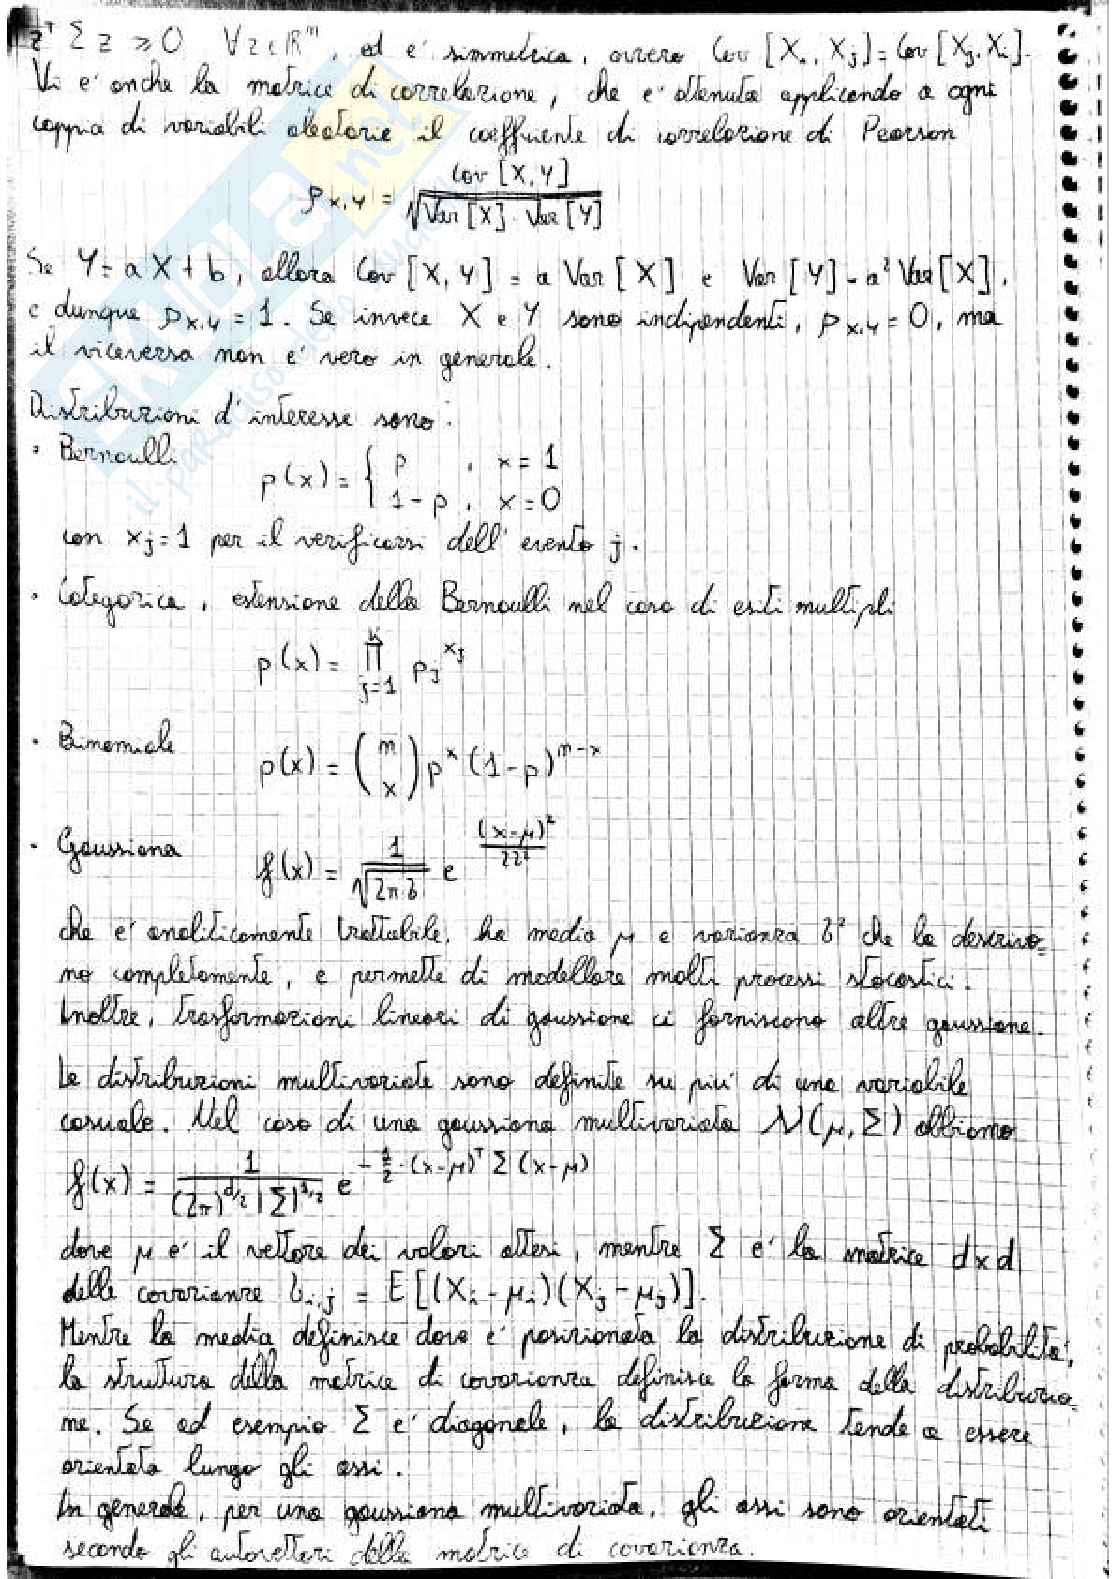 zᵀ Σ z ≥ 0 ∀ z ∈ ℝᵐ, ed e' simmetrica, ovvero Cov [Xᵢ, Xⱼ] = Cov [Xⱼ, Xᵢ].
Vi e' anche la matrice di correlazione, che e' ottenuta applicando a ogni
coppia di variabili aleatorie il coefficiente di correlazione di Pearson
ρx,y = Cov [X, Y] / √Var [X] · Var [Y]
Se Y = a X + b, allora Cov [X, Y] = a Var [X] e Var [Y] = a² Var [X],
e dunque ρx,y = 1. Se invece X e Y sono indipendenti, ρx,y = 0, ma
il viceversa non e' vero in generale.
Distribuzioni d'interesse sono:
• Bernoulli
p(x) = { p , x = 1
1 - p , x = 0
con xj = 1 per il verificarsi dell'evento j.
• Categorica, estensione della Bernoulli nel caso di esiti multipli
p(x) = ∏ⱼ₌₁ᵏ pj^xj
• Binomiale p(x) = (n x) p^x (1-p)^n-x
• Gaussiana f(x) = 1/√2π·σ e (x-μ)²/2σ²
che e' analiticamente trattabile, ha media μ e varianza σ² che la descrivo=
no completamente, e permette di modellare molti processi stocastici.
Inoltre, trasformazioni lineari di gaussiane ci forniscono altre gaussiane.
Le distribuzioni multivariate sono definite su piu' di una variabile
casuale. Nel caso di una gaussiana multivariata N(μ, Σ) abbiamo
f(x) = 1/(2π)^d/2 |Σ|^1/2 e^-1/2·(x-μ)ᵀ Σ (x-μ)
dove μ e' il vettore dei valori attesi, mentre Σ e' la matrice d x d
delle covarianze σi,j = E [(Xi - μi)(Xj - μj)].
Mentre la media definisce dove e' posizionata la distribuzione di probabilita',
la struttura della matrice di covarianza definisce la forma della distribuzio=
ne. Se ad esempio Σ e' diagonale, la distribuzione tende a essere
orientata lungo gli assi.
In generale, per una gaussiana multivariata, gli assi sono orientati
secondo gli autovettori della matrice di covarianza.
SKUOLA.net
il paradiso dello studente